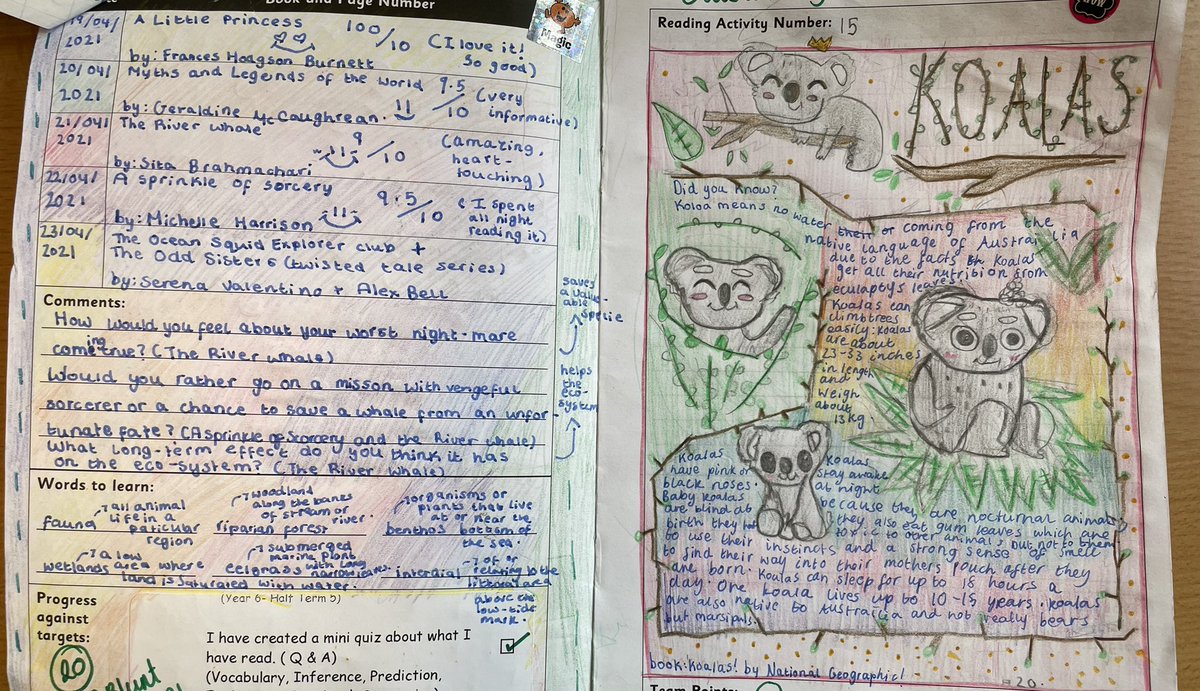 Book and Page Number
19/04/
2021
A Little Princess
100/10
(I love it!
So good)
by: Frances Hodgson Burnett
Magic
20/04/
2021
Myths and Legends of the World
9.5/10
(very
informative)
by: Geraldine McCaughrean.
21/04/
2021
The River whale
9/10
(amazing,
heart-
touching)
by: Sita Brahmachari
22/04/
2021
A sprinkle of sorcery
9.5/10
(I spent
all night
reading it)
by: Michelle Harrison
23/04/
2021
The Ocean Squid Explorer club +
The Odd Sisters (twisted tale series)
by: Serena Valentino + Alex Bell
Comments:
How would you feel about your worst night-mare
coming true? (The River whale)
Would you rather go on a misson with vengeful
sorcerer or a chance to save a whale from an unfor-
tunate fate? (A sprinkle of Sorcery and the River Whale)
What long-term effect do you think it has
on the eco-system? (The River Whale)
saves
a valu-
able
specie
helps
the
eco-
system
Words to learn:
fauna
all animal
life in a
paticular
region
riparian forest
woodland
along the banks
of stream or
river.
benthos
organisms or
plants that live
at or near the
bottom of
the sea.
wetlands
a low
area where
land is saturated with water
eelgrass
submerged
marine plant
with long
narrow
of or
relaying to the
littoral area
above the
low-tide
mark.
(Year 6- Half Term 5)
Progress
against
targets:
20
I have created a mini quiz about what I
have read. ( Q & A)
(Vocabulary, Inference, Prediction,
Reading Activity Number: 15
KOALAS
Did you know?
Koloa means no water
coming from the
native language of Australia
due to the facts Koalas
get all their nutrition from
eculaptys leaves
Koalas can
climb trees
easily. koalas
are about
23-33 inches
in length
and
weigh
about
13kg.
Koalas
have pink or
black noses.
Baby koalas
are blind at
birth they
to use their instincts and a strong sense of smell
to find their way into their mothers pouch after they
are born.
Koalas
stay awake
at night
because they are nocturnal animals
they also eat gum leaves which are
toxic to other animals but not to them
Koalas can sleep for up to 18 hours a
day. One koala lives up to 10-15 years. koalas
are also native to Austrailia and not really bears
but marsipals.
book: Koalas! by National Geographic!
=20.
Team Points: